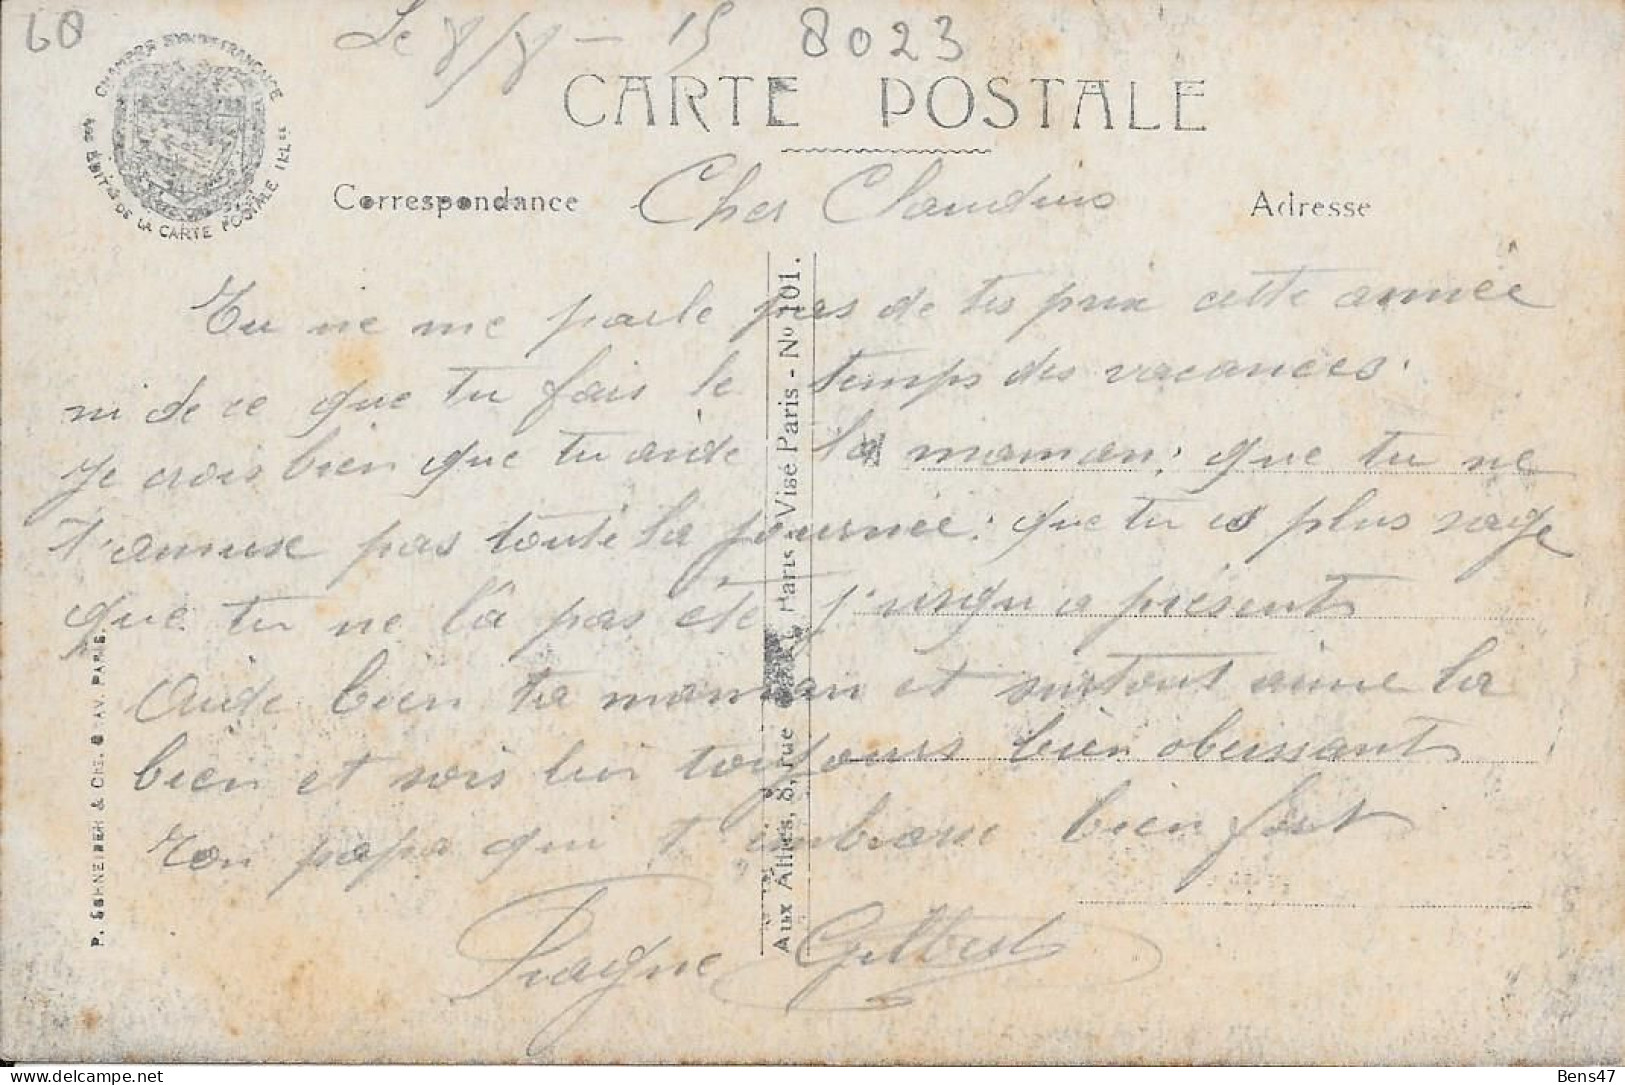 60
Le 8/8 - 15
8023
CHAMBRE SYNDle FRANÇAISE
des ÉDITrs DE LA CARTE POSTALE ILLée
CARTE POSTALE
Correspondance
Adresse
Cher Claudius
Tu ne me parle pas de tes prix cette année
ni de ce que tu fais le temps des vacances.
Je crois bien que tu aide la maman; que tu ne
t'amuse pas toute la journée; que tu es plus sage
que tu ne l'a pas été j'usqu a présent
Aide bien ta maman et surtout aime la
bien et sois lui toujours bien obeissant
Ton papa qui t'embrasse bien fort
Gilbert
Aux Alliés, 8, rue Paris. Visé Paris - No 101.
P. SCHNEIDER & CIE. AV. PARIS.
Bens47